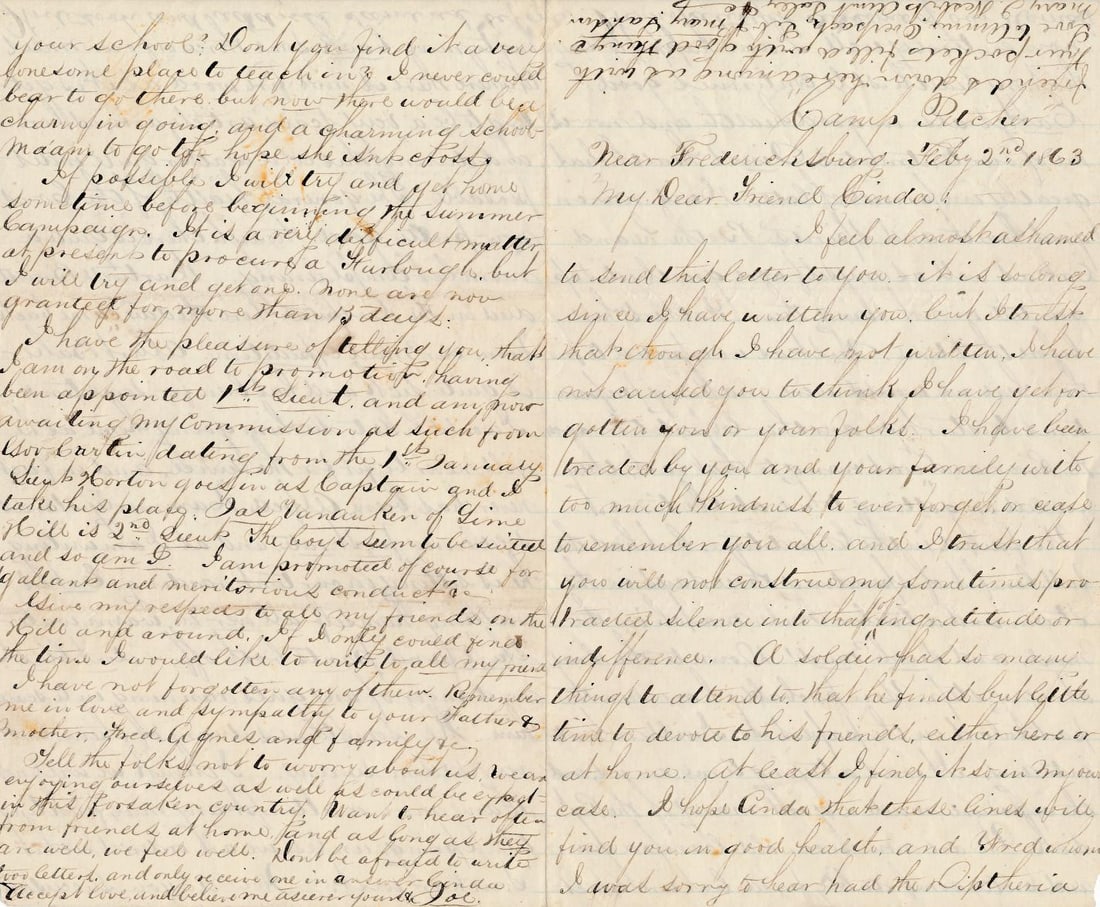 Camp Pitcher
Near Fredericksburg. Feby 2nd 1863
My Dear Friend Cinda!
I feel almost ashamed
to send this letter to you. - it is so long
since I have written you. but I trust
that though I have not written, I have
not caused you to think I have yet for-
gotten you or your folks. I have been
treated by you and your family with
too much kindness to ever forget or cease
to remember you all, and I trust that
you will not construe my sometimes pro-
tracted silence into that "ingratitude or
indifference. A soldier" has so many
things to attend to, that he finds but little
time to devote to his friends, either here or
at home. At least I find it so in my own
case. I hope Cinda that these lines will
find you in good health, and Fred whom
I was sorry to hear had the Diptheria
your school? Dont you find it a very
lonesome place to teach in? I never could
bear to go there. but now there would be a
charm in going. and a charming school
ma'am to go to. hope she isnt cross.
If possible I will try and get home
sometime before beginning the summer
Campaign. It is a very difficult matter
at present to procure a Furlough. but
I will try and get one. none are now
granted for more than 15 days.
I have the pleasure of telling you, that
I am on the road to promotion, having
been appointed 1st Lieut. and am now
awaiting my Commission as such from
Gov Curtin, dating from the 1st January
Lieut Horton goes in as Captain and I
take his place. Jas Vanauken of Lime
Hill is 2nd Lieut The boys seem to be suited
and so am I. I am promoted of course for
gallant and meritorious conduct &c
Give my respects to all my friends on the
Hill and around. If I only could find
the time I would like to write to all my friend
I have not forgotten any of them. Remember
me in love and sympathy to your Father &
Mother, Fred, Agnes and family &c
Tell the folks not to worry about us, we are
enjoying ourselves as well as could be expect-
in this forsaken country. Want to hear often
from friends at home, and as long as they
are well, we feel well. Dont be afraid to write
letters, and only receive one in answer Cinda
Accept love, and believe me as ever yours & Joe.
friends down here among us with
your pockets filled with good things.
Love to